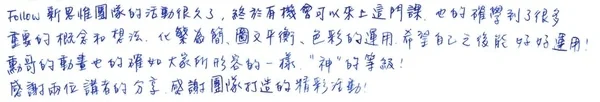 Follow 新思惟團隊的活動很久了，終於有機會可以來上這門課，也的確學到了很多
重要的概念和想法，化繁為簡、圖文平衡、色彩的運用，希望自己之後能好好運用！
勳哥的動畫也的確如大家所形容的一樣，"神"的等級！
感謝兩位講者的分享，感謝團隊打造的精彩活動！